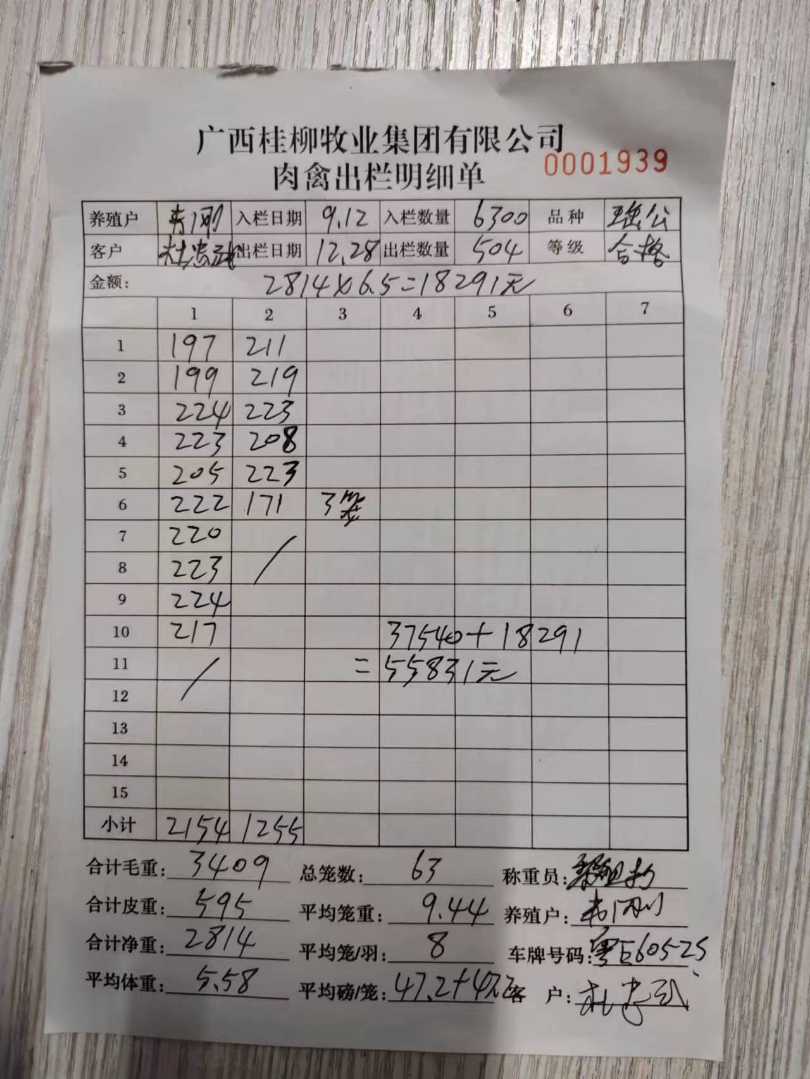 广西桂柳牧业集团有限公司
肉禽出栏明细单 0001939
养殖户 入栏日期 9.12 入栏数量 6300 品种
客户 出栏日期 12.28 出栏数量 504 等级 合格
金额: 2814×6.5=18291元
1 2 3 4 5 6 7
1 197 211
2 199 219
3 224 223
4 223 208
5 205 223
6 222 171 3笼
7 220
8 223 /
9 224
10 217 37540+18291
11 / =55831元
12
13
14
15
小计 2154 1255
合计毛重: 3409 总笼数: 63 称重员:
合计皮重: 595 平均笼重: 9.44 养殖户:
合计净重: 2814 平均笼/羽: 8 车牌号码: 粤E60525
平均体重: 5.58 平均磅/笼: 47.2+47.2 客 户: